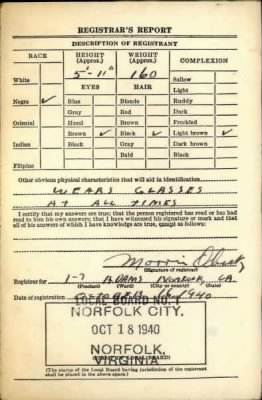 REGISTRAR'S REPORT
DESCRIPTION OF REGISTRANT
RACE HEIGHT (Approx.) WEIGHT (Approx.) COMPLEXION
White 5'-11" 160 Sallow
EYES HAIR Light
Negro ✓ Blue Blonde Ruddy
Gray Red Dark
Oriental Hazel Brown Freckled
Brown ✓ Black ✓ Light brown ✓
Indian Black Gray Dark brown
Bald Black
Filipino
Other obvious physical characteristics that will aid in identification
WEARS GLASSES
AT ALL TIMES
I certify that my answers are true; that the person registered has read or has had
read to him his own answers; that I have witnessed his signature or mark and that
all of his answers of which I have knowledge are true, except as follows:
Morris
(Signature of registrar)
Registrar for 1-7 ADAMS NORFOLK, VA.
(Precinct) (Ward) (City or county) (State)
Date of registration OCTOBER 16, 1940
LOCAL BOARD NO. 1
NORFOLK CITY,
OCT 18 1940
NORFOLK,
VIRGINIA
(The stamp of the Local Board having jurisdiction of the registrant
shall be placed in the above space.)